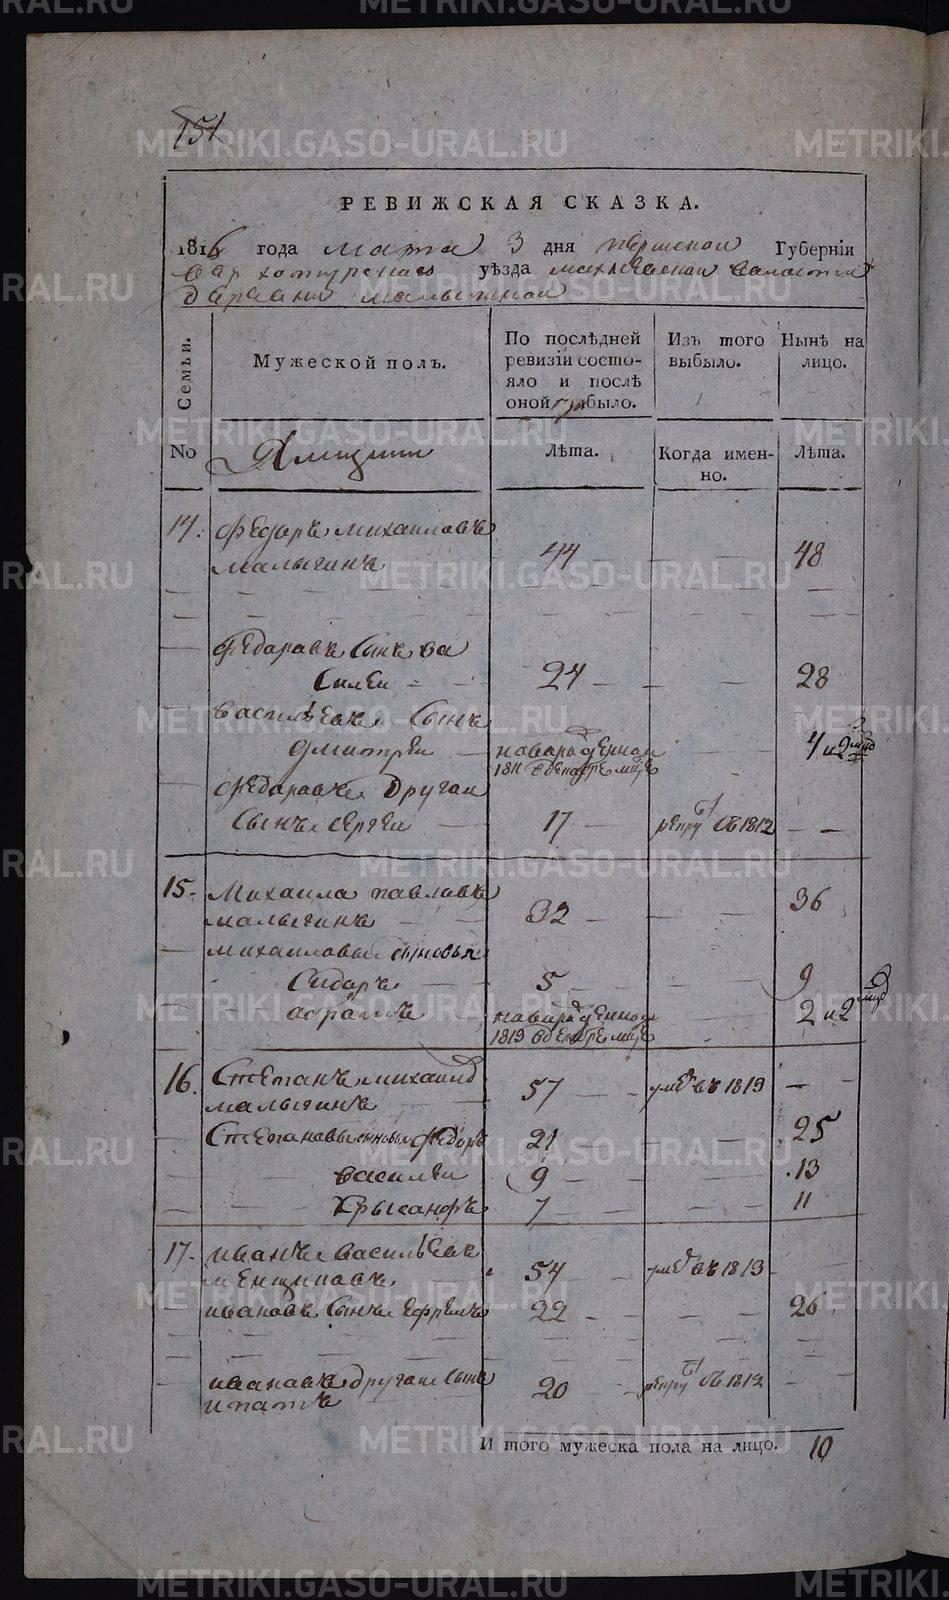 151
РЕВИЖСКАЯ СКАЗКА.
1816 года марта 3 дня пермской Губерніи
верхотурскаго уѣзда махневской валости
деревни малыгиной
Семьи.
Мужеской полъ.
По послѣдней ревизіи состояло и послѣ оной прибыло.
Изъ того выбыло.
Нынѣ на лицо.
No
Ямщики
Лѣта.
Когда именно.
Лѣта.
14. Федоръ михаиловъ
малыгинъ 44 — — 48
Федоровъ Сынъ ва
силеи 24 — — 28
василѣевъ Сынъ
дмитреи новорожденной 4 и 2 мцд
1811 в декабре мцѣ
Федоровъ другои
Сынъ сергеи 17 рекру 1812 — —
15. Михаила павловъ
малыгинъ 32 — — 36
михаиловы сыновья
Сидоръ 5 — — 9
новорожденной 2 и 2 мцд
1813 в декабре мцѣ
16. Степанъ михаил
малыгинъ 57 умѣ въ 1813 — —
Степановы сыновья Федоръ 21 — — 25
василеи 9 — — 13
Хрысанфъ 7 — — 11
17. иванъ василѣевъ
менщиковъ 54 умѣ въ 1813
ивановъ Сынъ ефремъ 22 — — 26
ивановъ другои Сынъ
ипатъ 20 рекру 1812 — —
И того мужеска пола на лицо. 10
METRIKI.GASO-URAL.RU